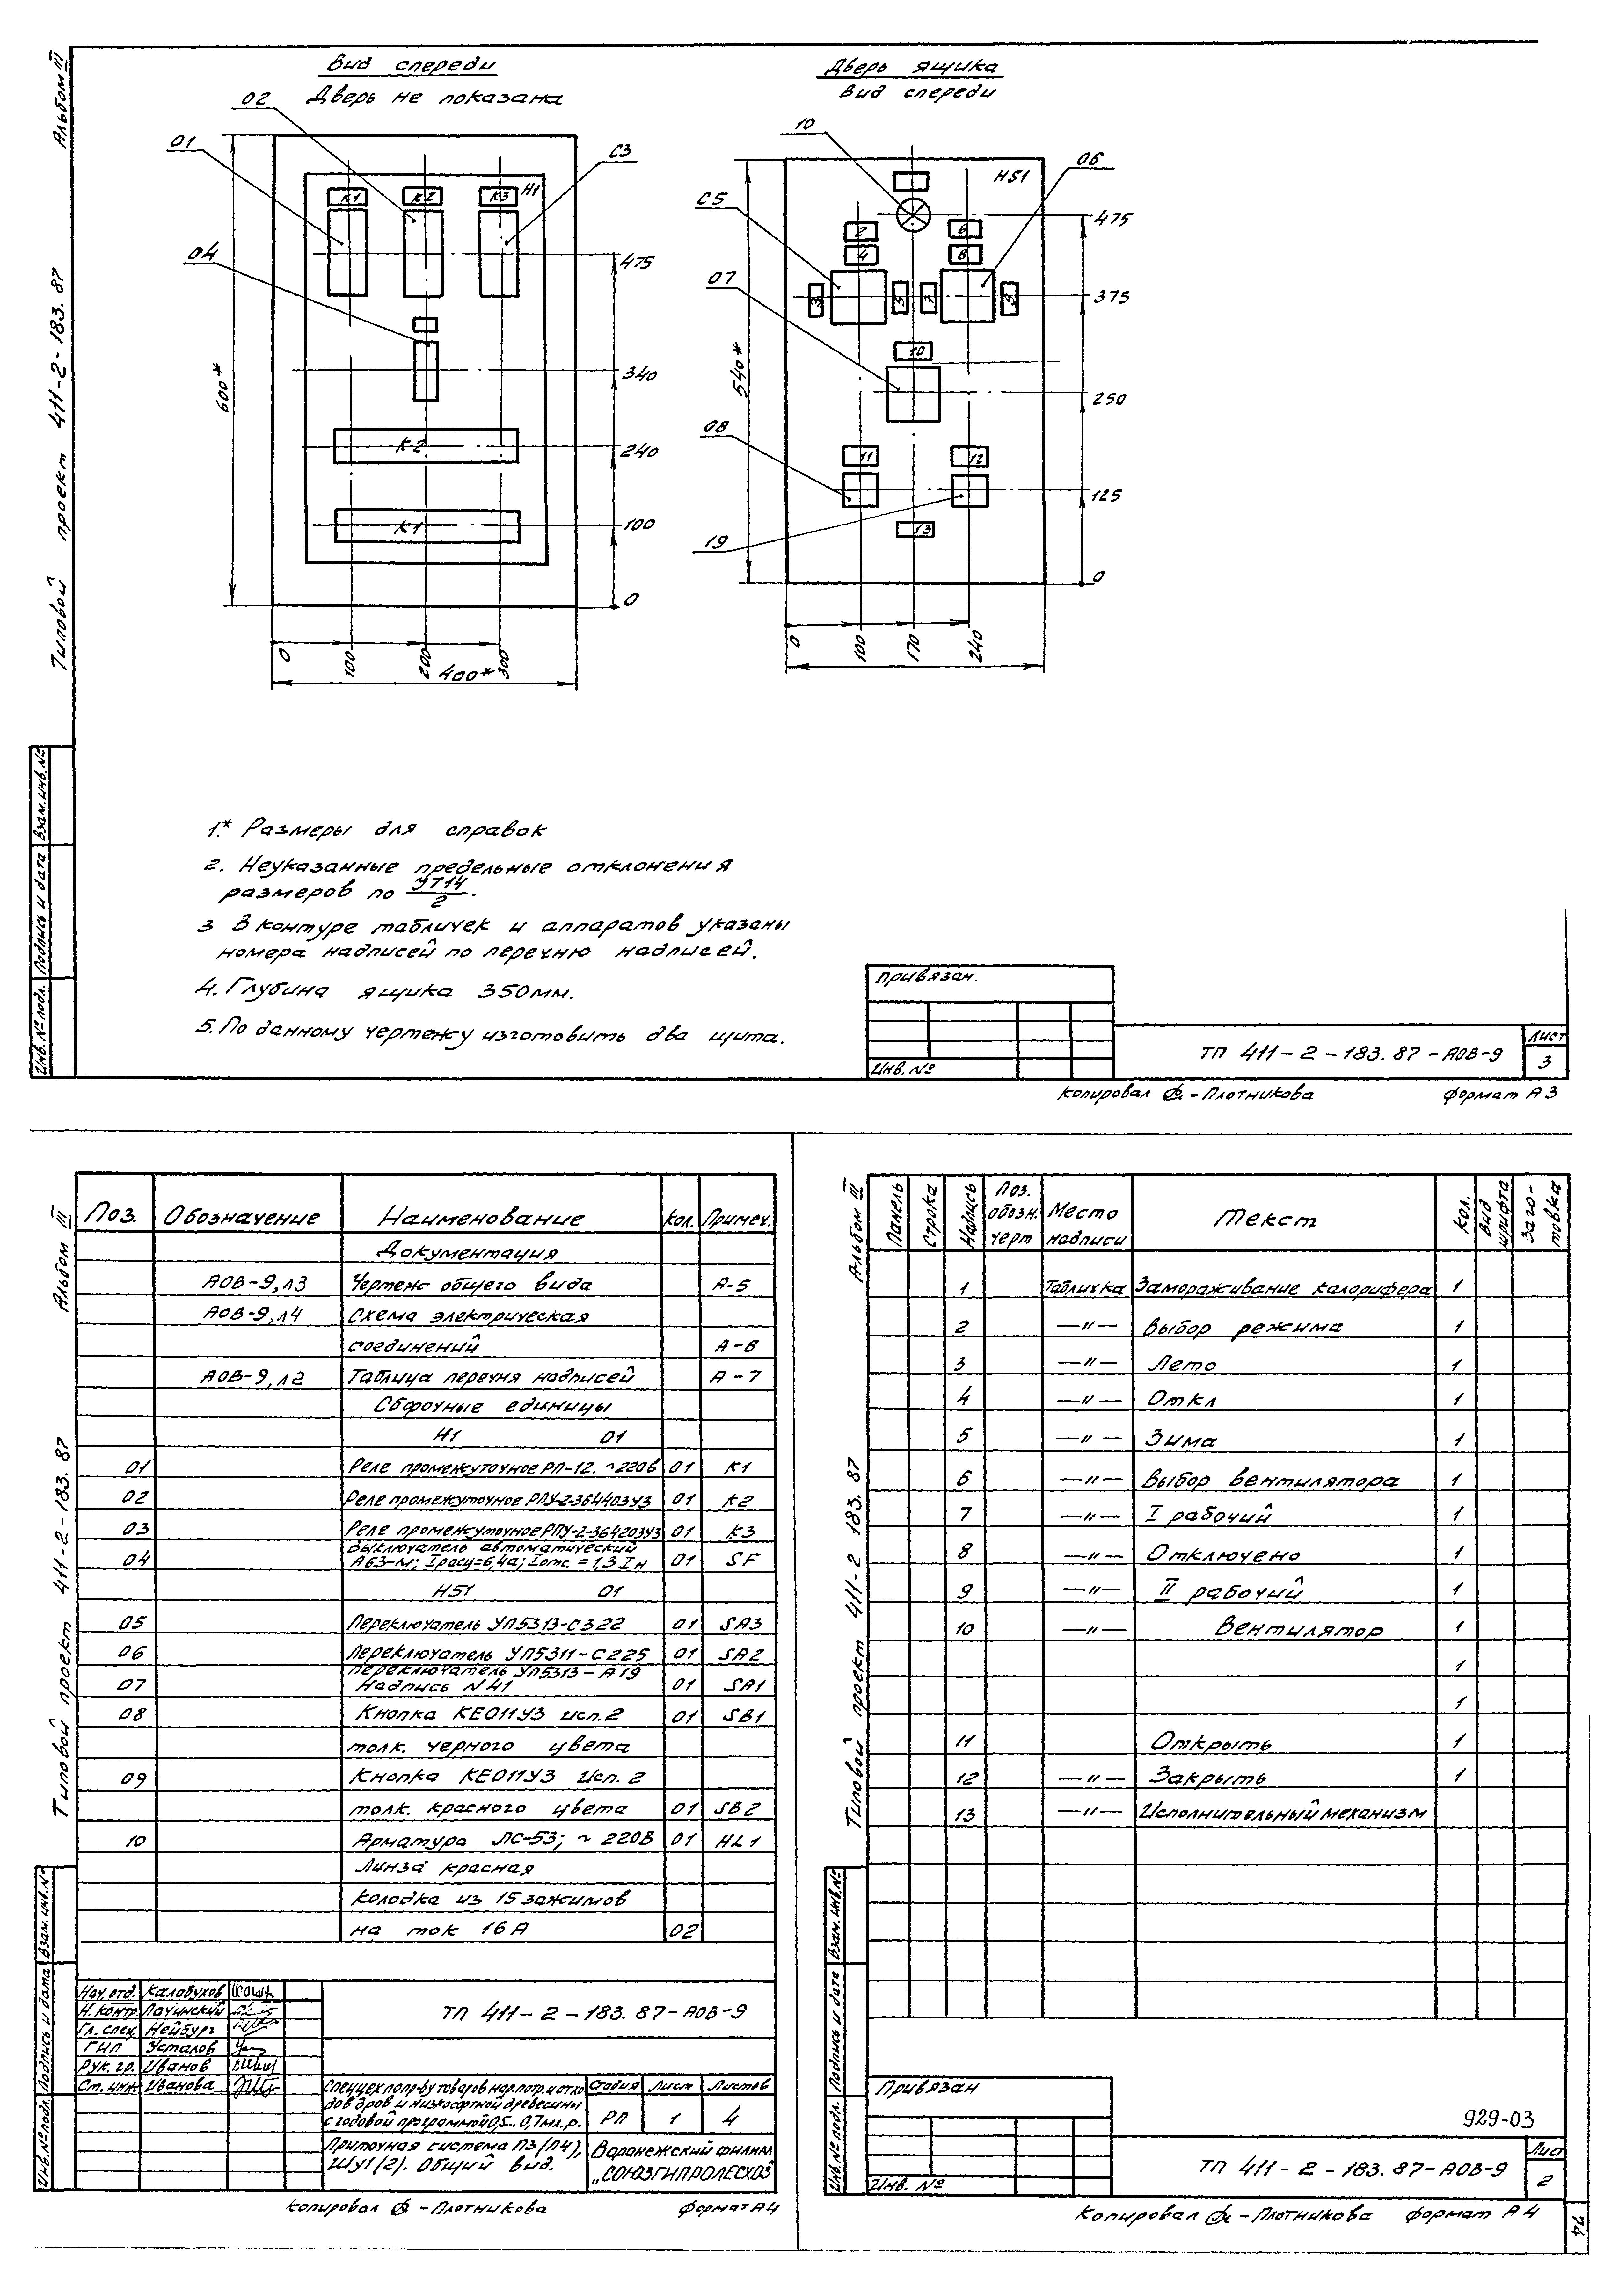 Альбом III
Типовой проект 411-2-183.87
Вид спереди
Дверь не показана
02
01
С3
04
К1
К2
К3
Н1
К-2
К1
600*
475
340
240
100
0
0
100
200
300
400*
Дверь ящика
Вид спереди
10
06
С5
07
08
19
НS1
2
4
6
8
3
5
7
9
10
11
12
13
540*
475
375
250
125
0
0
100
170
240
1.* Размеры для справок
2. Неуказанные предельные отклонения
размеров по УТ14/2.
3 В контуре табличек и аппаратов указаны
номера надписей по перечню надписей.
4. Глубина ящика 350мм.
5. По данному чертежу изготовить два щита.
Инв.№ подл. Подпись и дата Взам.инв.№
Привязан.
Инв. №
ТП 411-2-183.87-АОВ-9
Лист
3
Копировал -Плотникова Формат А3
Альбом III
Типовой проект 411-2-183.87
Поз. Обозначение Наименование Кол. Примеч.
Документация
АОВ-9,л3 Чертеж общего вида А-5
АОВ-9,л4 Схема электрическая
соединений А-8
АОВ-9,л2 Таблица перечня надписей А-7
Сборочные единицы
Н1 01
01 Реле промежуточное РП-12. ~220В 01 К1
02 Реле промежуточное РПУ-2-36440У3 01 К2
03 Реле промежуточное РПУ-2-36420У3 01 К3
Выключатель автоматический
04 А63-М; Iрасц=6,4а; Iотс. = 1,3 Iн 01 SF
НS1 01
05 Переключатель УП5313-С322 01 SA3
06 Переключатель УП5311-С225 01 SA2
Переключатель УП5313-А19
07 Надпись N41 01 SA1
08 Кнопка КЕ011У3 исп.2 01 SB1
толк. черного цвета
09 Кнопка КЕ011У3 Исп. 2
толк. красного цвета 01 SB2
10 Арматура ЛС-53; ~220В 01 HL1
Линза красная
Колодка из 15 зажимов
на ток 16А 02
Инв.№ подл. Подпись и дата Взам.инв.№
Нач.отд. Калабухов
Н.контр. Лачинский
Гл. спец Нейбург
ГИП Усталов
Рук. гр. Иванов
Ст. инж Иванова
ТП 411-2-183.87-АОВ-9
Спеццех попр-ву товаров нар.потр.и отхо
дов дров и низкосортной древесины
с годовой программой 0,5...0,7мл.р.
Стадия Лист Листов
РП 1 4
Приточная система П3(П4),
ШУ1(2). Общий вид.
Воронежский филиал
„СОЮЗГИПРОЛЕСХОЗ
Копировал -Плотникова Формат А4
Альбом III
Типовой проект 411-2 183.87
Панель Строка Надпись Поз. обозн. черт Место надписи Текст Кол. Вид шрифта Заготовка
1 Табличка Замораживание калорифера 1
2 —"— Выбор режима 1
3 —"— Лето 1
4 —"— Откл 1
5 —"— Зима 1
6 —"— Выбор вентилятора 1
7 —"— I рабочий 1
8 —"— Отключено 1
9 —"— II рабочий 1
10 —"— Вентилятор 1
1
1
11 Открыть 1
12 —"— Закрыть 1
13 —"— Исполнительный механизм
Инв.№ подл. Подпись и дата Взам.инв.№
Привязан
Инв. №
929-03
ТП 411-2-183.87-АОВ-9
Лист
2
Копировал -Плотникова Формат А4
74